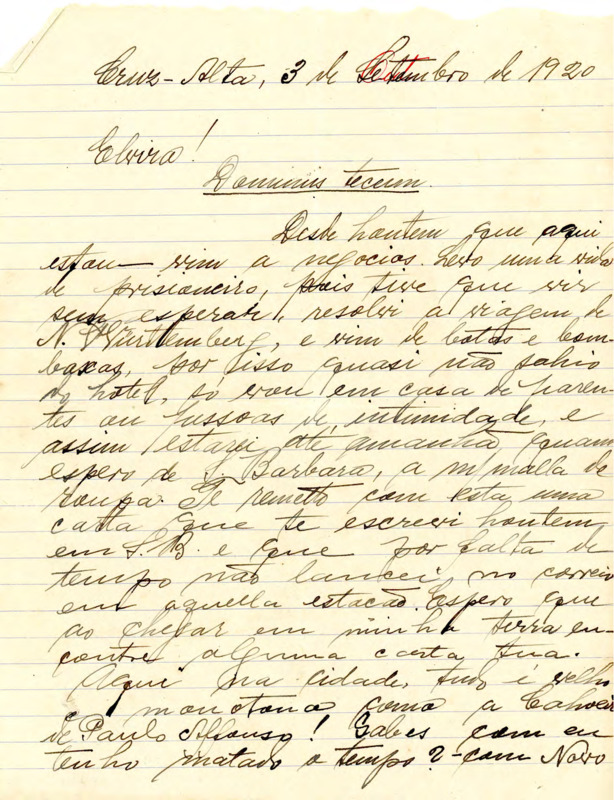 Cruz-Alta, 3 de Setembro de 1920
Elvira!
Dominus tecum.
Desde hontem que aqui
estou — vim a negocios. Levo uma vida
de prisioneiro, pois tive que vir
sem esperar, resolvi a viagem de
N. Württemberg, e vim de botas e bom-
baxas, por isso quasi não sahio
do hotel, só vou em casa de paren-
tes ou pessoas de intimidade, e
assim estarei até amanhã quando
espero de S. Barbara, a m/ malla de
roupa. Te remetto com esta uma
carta que te escrevi hontem,
em S. B. e que por falta de
tempo não lancei no correio
em aquella estacão. Espero que
ao chegar em minha terra en-
contre alguma carta tua.
Aqui na cidade, tudo é velho
monotona como a Cahoeira
de Paulo Affonso! Sabes com eu
tenho matado o tempo? - com Novo